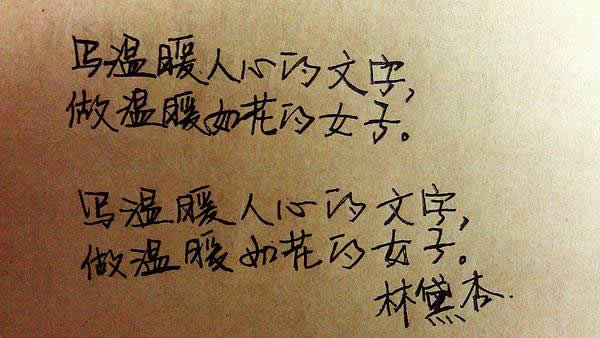 写温暖人心的文字，
做温暖如花的女子。
写温暖人心的文字，
做温暖如花的女子。
林黛杏.